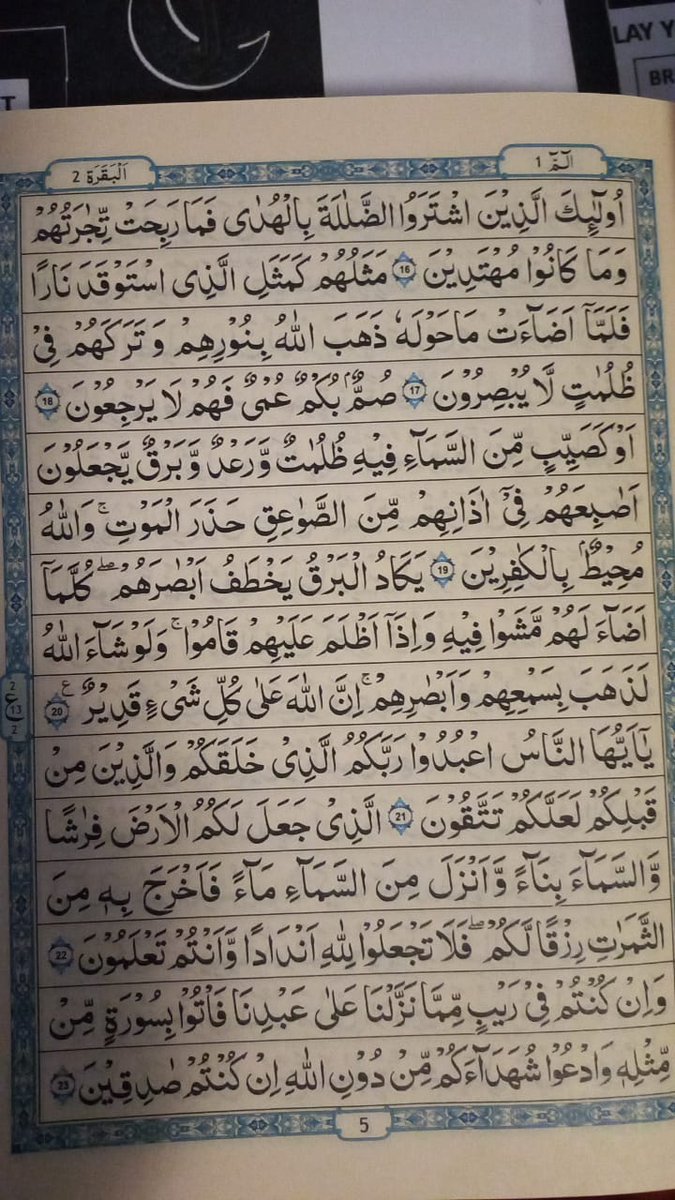 LAY Y
BR
T
الٓمّٓ 1
اَلْبَقَرَة 2
اُولٰٓئِكَ الَّذِيْنَ اشْتَرَوُا الضَّلٰلَةَ بِالْهُدٰى فَمَا رَبِحَتْ تِّجَارَتُهُمْ
وَمَا كَانُوْا مُهْتَدِيْنَ 16 مَثَلُهُمْ كَمَثَلِ الَّذِى اسْتَوْقَدَ نَارًا
فَلَمَّآ اَضَآءَتْ مَا حَوْلَهٗ ذَهَبَ اللّٰهُ بِنُوْرِهِمْ وَتَرَكَهُمْ فِىْ
ظُلُمٰتٍ لَّا يُبْصِرُوْنَ 17 صُمٌّۢ بُكْمٌ عُمْىٌ فَهُمْ لَا يَرْجِعُوْنَ 18
اَوْ كَصَيِّبٍ مِّنَ السَّمَآءِ فِيْهِ ظُلُمٰتٌ وَّرَعْدٌ وَّبَرْقٌ يَّجْعَلُوْنَ
اَصَابِعَهُمْ فِىْٓ اٰذَانِهِمْ مِّنَ الصَّوَاعِقِ حَذَرَ الْمَوْتِ ۚ وَاللّٰهُ
مُحِيْطٌۢ بِالْكٰفِرِيْنَ 19 يَكَادُ الْبَرْقُ يَخْطَفُ اَبْصَارَهُمْ ۖ كُلَّمَآ
اَضَآءَ لَهُمْ مَّشَوْا فِيْهِ وَاِذَآ اَظْلَمَ عَلَيْهِمْ قَامُوْا ۚ وَلَوْ شَآءَ اللّٰهُ
لَذَهَبَ بِسَمْعِهِمْ وَاَبْصَارِهِمْ ۚ اِنَّ اللّٰهَ عَلٰى كُلِّ شَىْءٍ قَدِيْرٌ ع 20
2 ع 13 2
يٰٓاَيُّهَا النَّاسُ اعْبُدُوْا رَبَّكُمُ الَّذِىْ خَلَقَكُمْ وَالَّذِيْنَ مِنْ
قَبْلِكُمْ لَعَلَّكُمْ تَتَّقُوْنَ 21 الَّذِىْ جَعَلَ لَكُمُ الْاَرْضَ فِرَاشًا
وَّالسَّمَآءَ بِنَآءً وَّاَنْزَلَ مِنَ السَّمَآءِ مَآءً فَاَخْرَجَ بِهٖ مِنَ
الثَّمَرٰتِ رِزْقًا لَّكُمْ ۖ فَلَا تَجْعَلُوْا لِلّٰهِ اَنْدَادًا وَّاَنْتُمْ تَعْلَمُوْنَ 22
وَاِنْ كُنْتُمْ فِىْ رَيْبٍ مِّمَّا نَزَّلْنَا عَلٰى عَبْدِنَا فَاْتُوْا بِسُوْرَةٍ مِّنْ
مِّثْلِهٖ وَادْعُوْا شُهَدَآءَكُمْ مِّنْ دُوْنِ اللّٰهِ اِنْ كُنْتُمْ صٰدِقِيْنَ 23
5